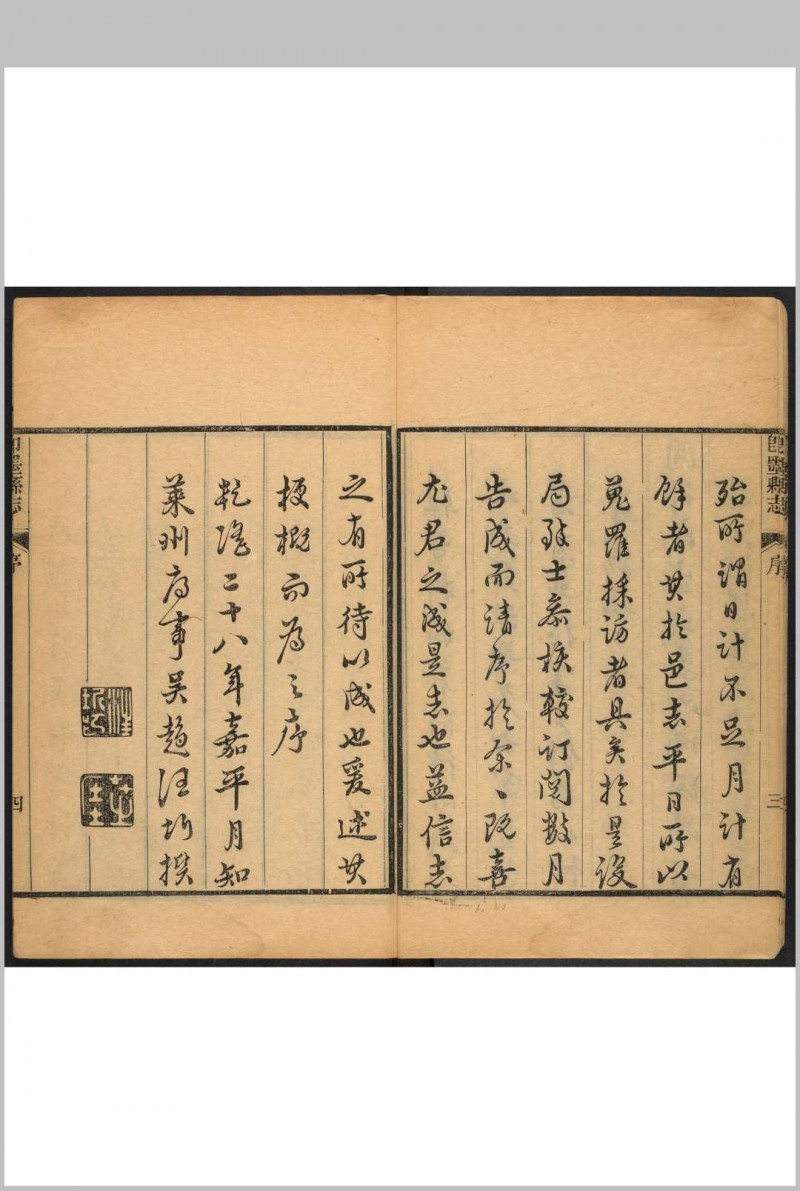 即墨縣志
序
三
殆所謂日計不足月計有
餘者其於邑志平日所以
蒐羅採訪者具矣於是設
局致士參核較訂閱數月
告成而請序於余〻既喜
尤君之成是志也益信志
之有所待以成也爰述其
梗概而為之序
乾隆二十八年嘉平月知
萊州府事吳趨汪圻撰
汪圻
即墨縣志
序
四